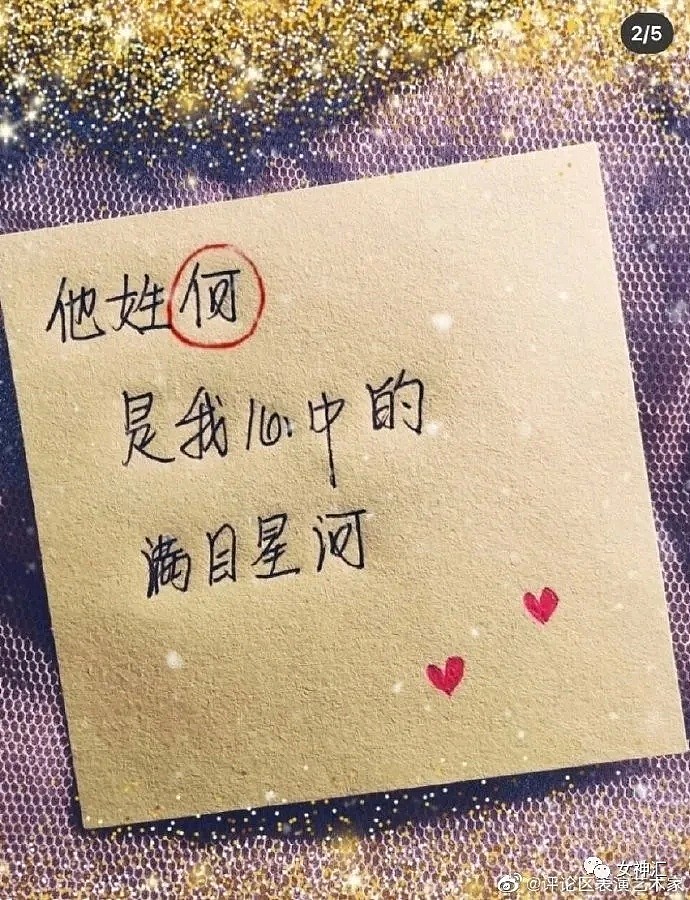 2/5
他姓何
是我心中的
满目星河
女神汇
@评论区表演艺术家